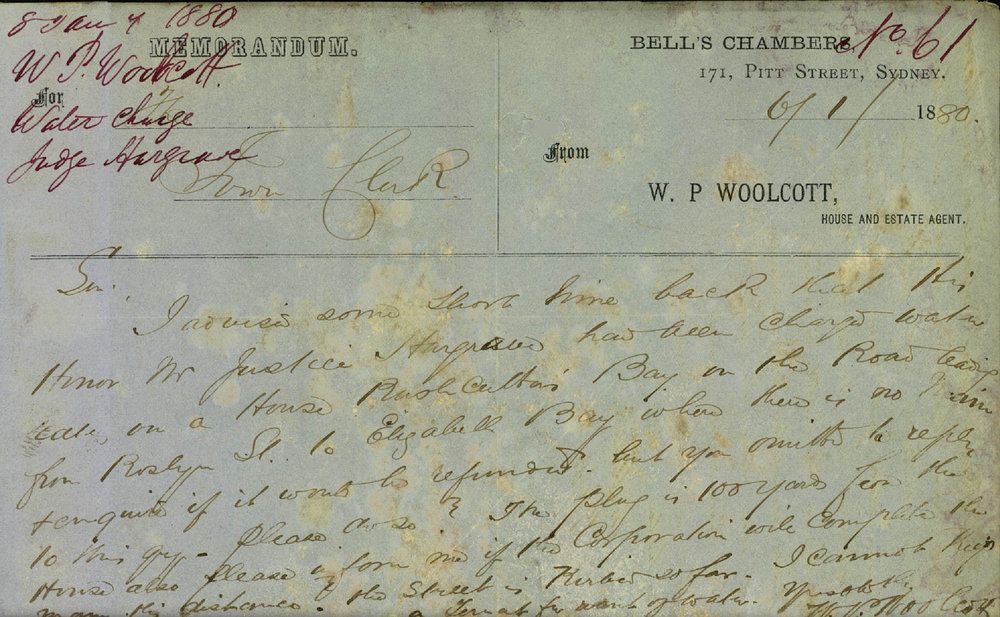 8 Jany 1880
W P. Woolcott
Water Charge
Judge Hargrave
No. 61
MEMORANDUM.
For
Town Clerk
BELL'S CHAMBERS,
171, PITT STREET, SYDNEY.
6/1/ 1880.
From
W. P WOOLCOTT,
HOUSE AND ESTATE AGENT.
Sir,
I advised some short time back that His
Honor Mr Justice Hargrave had been charged water
rate, on a House Rushcutters Bay on the Road leading
from Roslyn St. to Elizabeth Bay where there is no Main
& enquired if it would be refunded. but you omitted to reply
to this qry - Please do so & The plug is 100 yards from the
House also please inform me if the Corporation will complete the
the Street is Kerbed so far. I cannot keep
this distance. a Tenant for want of water. Yrs
W. P. Woolcott